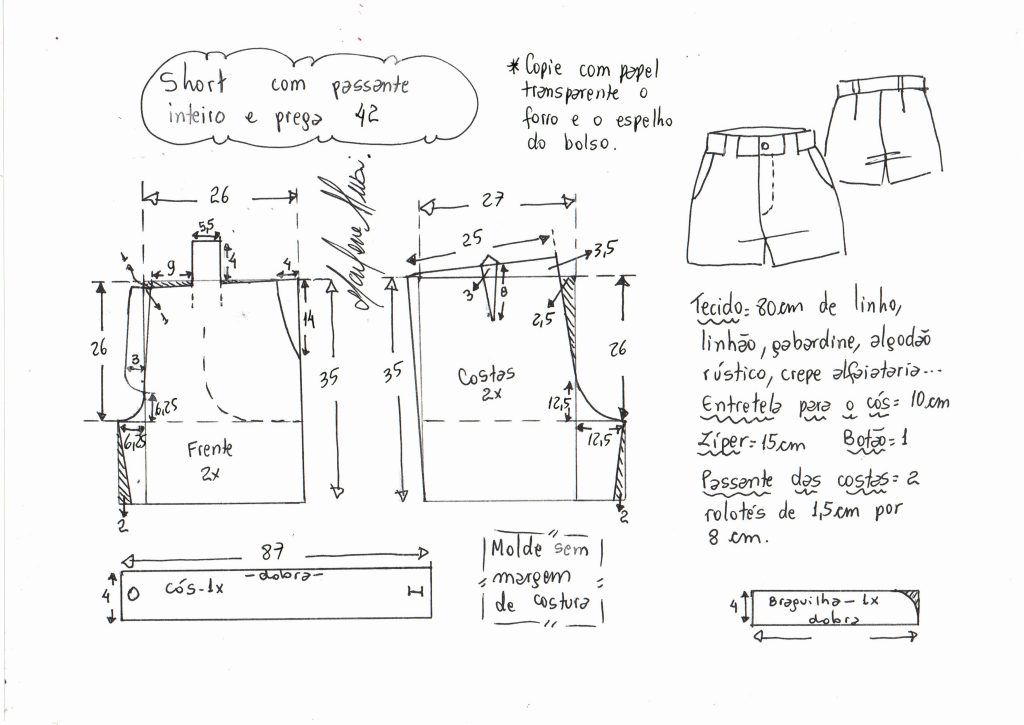 Short com passante
inteiro e prega 42
* Copie com papel
transparente o
forro e o espelho
do bolso.
Marlene Mukai.
26
5,5
4
9
4
1
1
14
26
3
6,25
6,25
35
Frente
2x
2
27
25
3,5
3
8
2,5
35
26
Costas
2x
12,5
12,5
2
Tecido = 80 cm de linho,
linhão, gabardine, algodão
rústico, crepe alfaiataria...
Entretela para o cós = 10 cm
Zíper = 15 cm Botão = 1
Passante das costas = 2
rolotés de 1,5 cm por
8 cm.
87
4
cós - 1x
- dobra -
Molde sem
margem
de costura
4
Braguilha - 1x
dobra